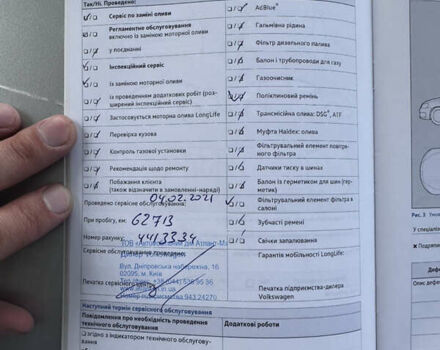 Так/Ні. Проведено:
Сервіс по заміні оливи
Регламентне обслуговування
включно із заміною моторної оливи
у поєднанні
Інспекційний сервіс
із заміною моторної оливи
із проведенням додаткових робіт (роз-
ширений інспекційний сервіс)
Застосовується моторна олива LongLife
Перевірка кузова
Контроль газової установки
Рекомендація щодо ремонту
Побажання клієнта
(також відзначити в замовленні-наряді)
Проведено сервісне обслуговування: 04.02.2021
При пробігу, км: 62713
Номер рахунку: 4413334
ТОВ
Дилер Volkswagen
Сервісне обслуговування проведено:
Вул. Дніпровська набережна, 16
02095, м. Київ
Печатка сервісного
AdBlue®
Гальмівна рідина
Фільтр дизельного палива
Балон і трубопроводи для газу
Газоочисник
Поліклиновий ремінь
Трансмісійна олива: DSG®, ATF
Муфта Haldex: олива
Фільтрувальний елемент повітря-
ного фільтра
Датчики тиску в шинах
Балон із герметиком для шин (гер-
метик)
Фільтрувальний елемент фільтра в
салоні
Зубчасті ремені
Свічки запалювання
Гарантія мобільності LongLife:
Печатка підприємства-дилера
Volkswagen
Наступний термін сервісного обслуговування
Повідомлення про необхідність проведення
технічного обслуговування
Додаткові роботи
згідно з індикатором технічного обслугову-
Рис. 3
У спеціаліз
Подряпин
Дефек
Опис дефек